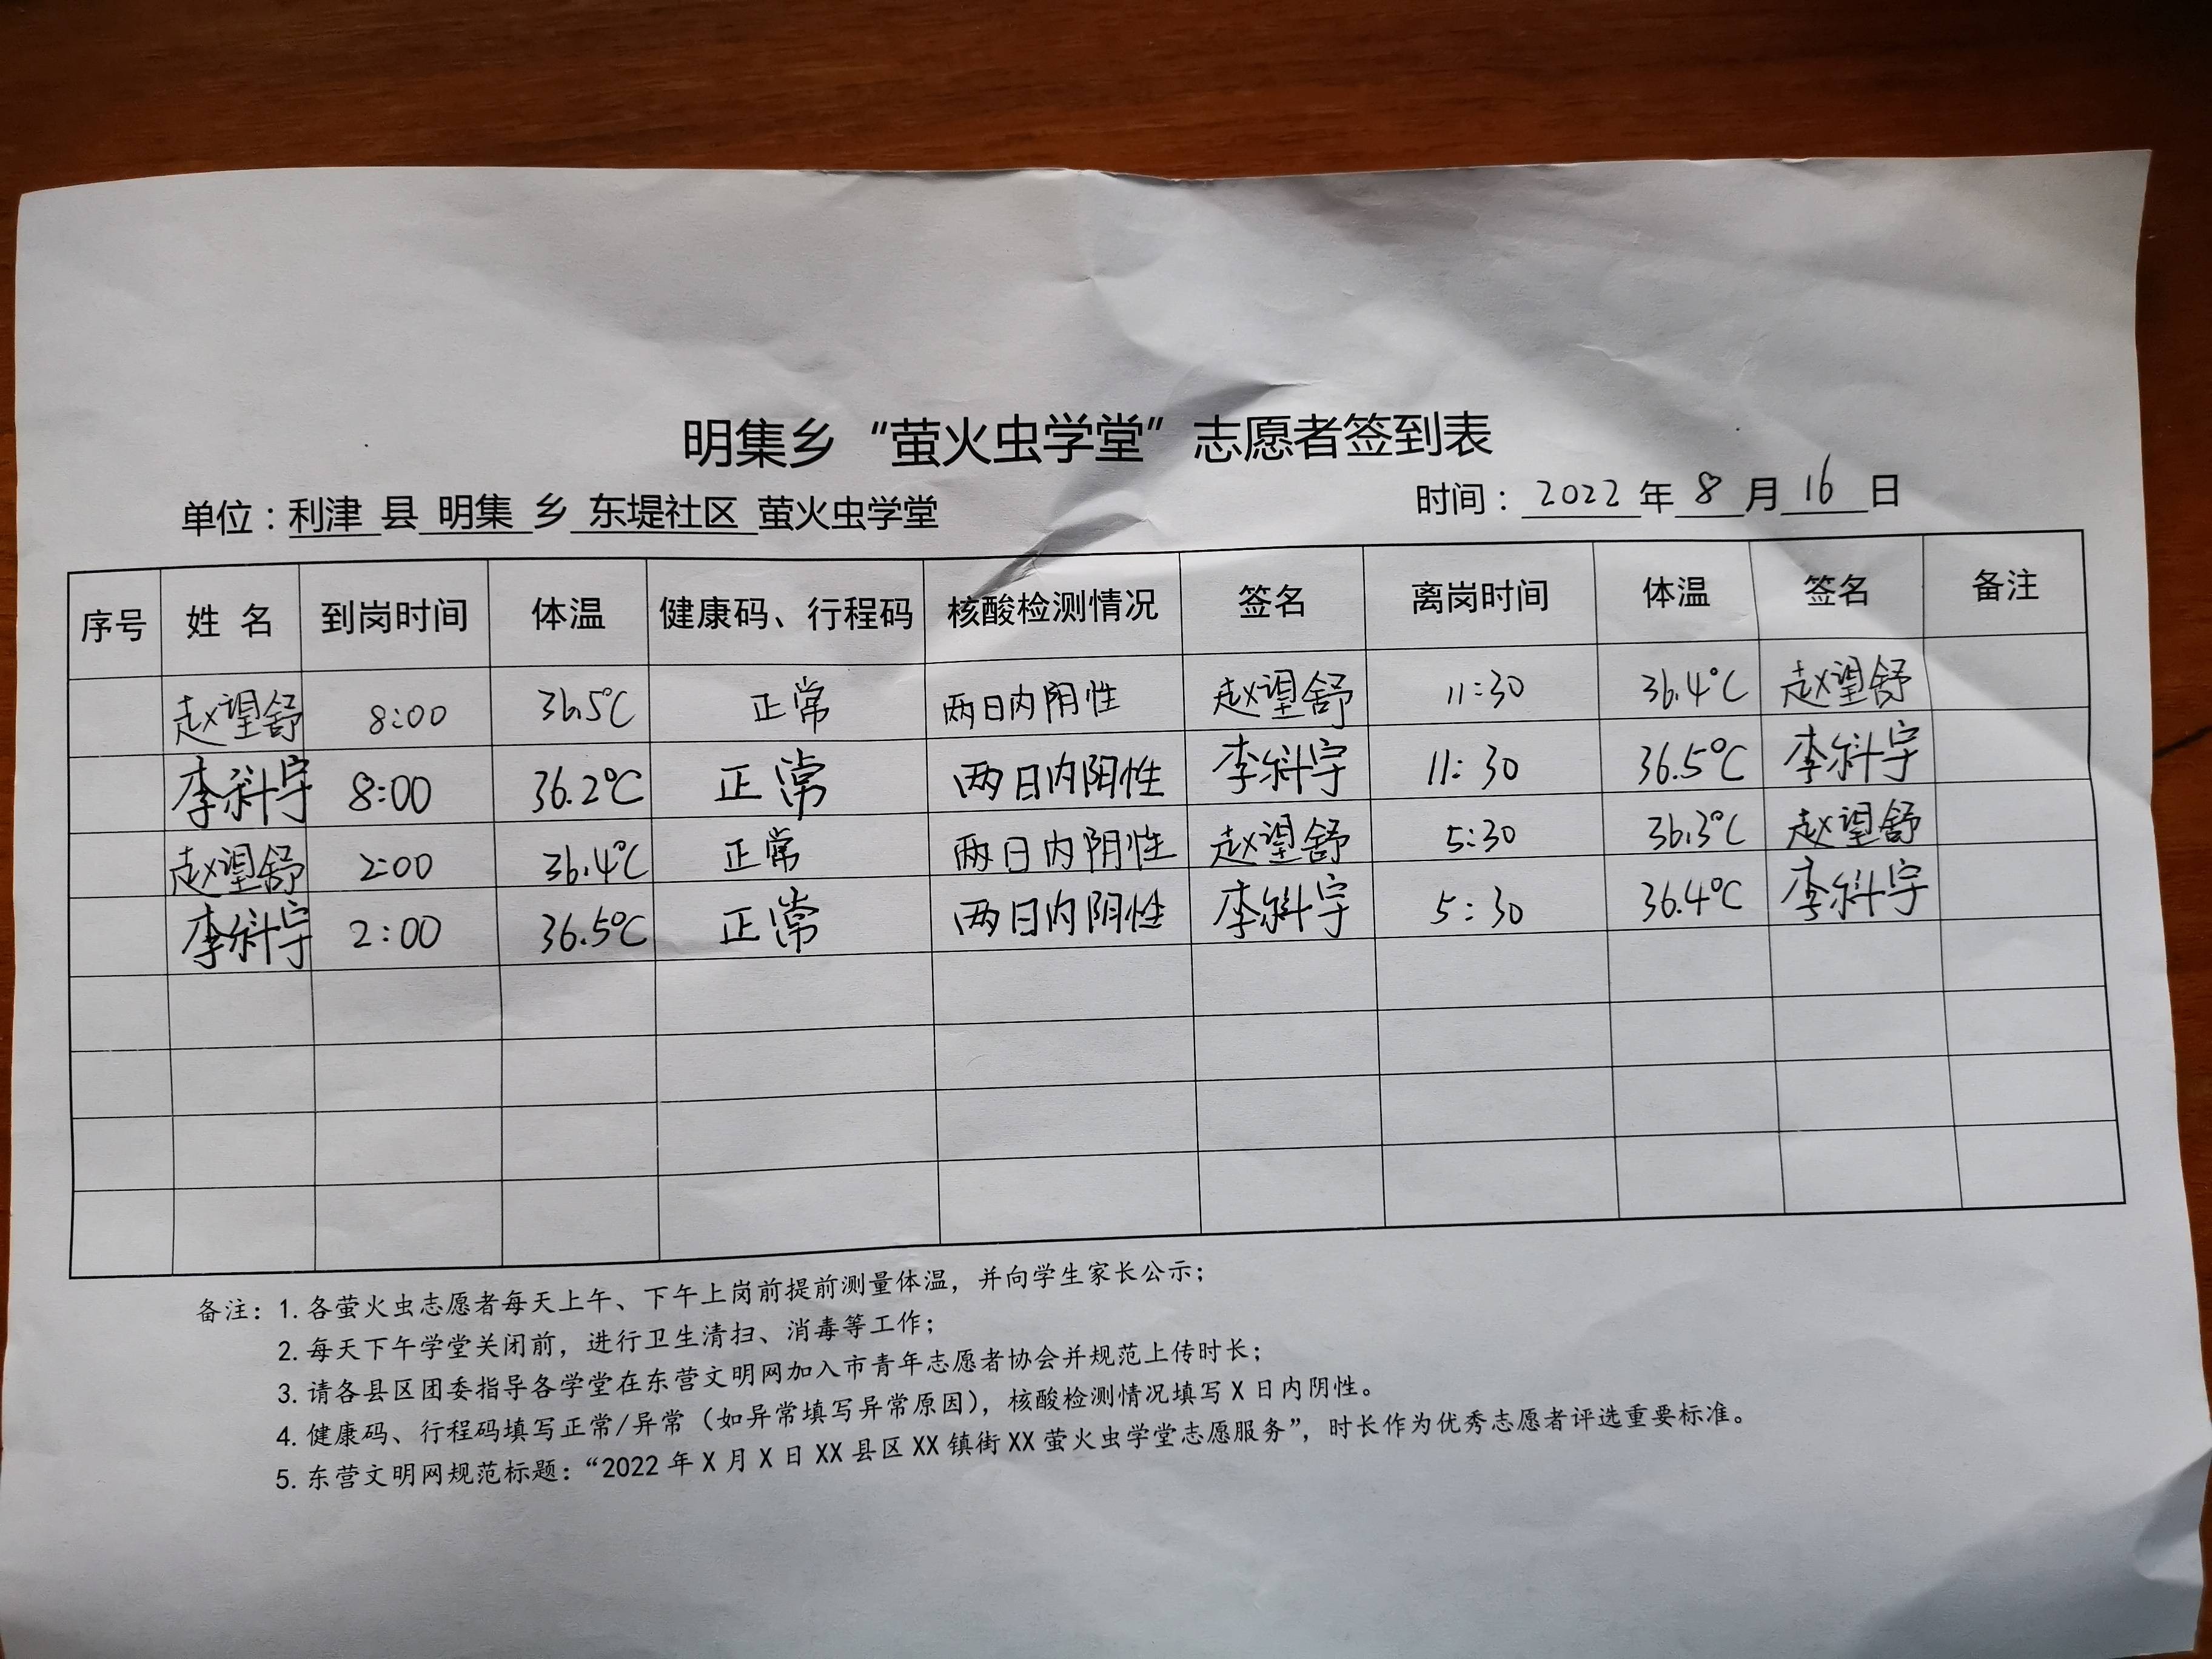 明集乡“萤火虫学堂”志愿者签到表
单位：利津 县 明集 乡 东堤社区 萤火虫学堂 时间：2022年8月16日
序号 姓 名 到岗时间 体温 健康码、行程码 核酸检测情况 签名 离岗时间 体温 签名 备注
赵望舒 8:00 36.5℃ 正常 两日内阴性 赵望舒 11:30 36.4℃ 赵望舒
李科宇 8:00 36.2℃ 正常 两日内阴性 李科宇 11:30 36.5℃ 李科宇
赵望舒 2:00 36.4℃ 正常 两日内阴性 赵望舒 5:30 36.3℃ 赵望舒
李科宇 2:00 36.5℃ 正常 两日内阴性 李科宇 5:30 36.4℃ 李科宇
备注：1. 各萤火虫志愿者每天上午、下午上岗前提前测量体温，并向学生家长公示；
2. 每天下午学堂关闭前，进行卫生清扫、消毒等工作；
3. 请各县区团委指导各学堂在东营文明网加入市青年志愿者协会并规范上传时长；
4. 健康码、行程码填写正常/异常（如异常填写异常原因），核酸检测情况填写 X 日内阴性。
5. 东营文明网规范标题：“2022 年 X 月 X 日 XX 县区 XX 镇街 XX 萤火虫学堂志愿服务”，时长作为优秀志愿者评选重要标准。